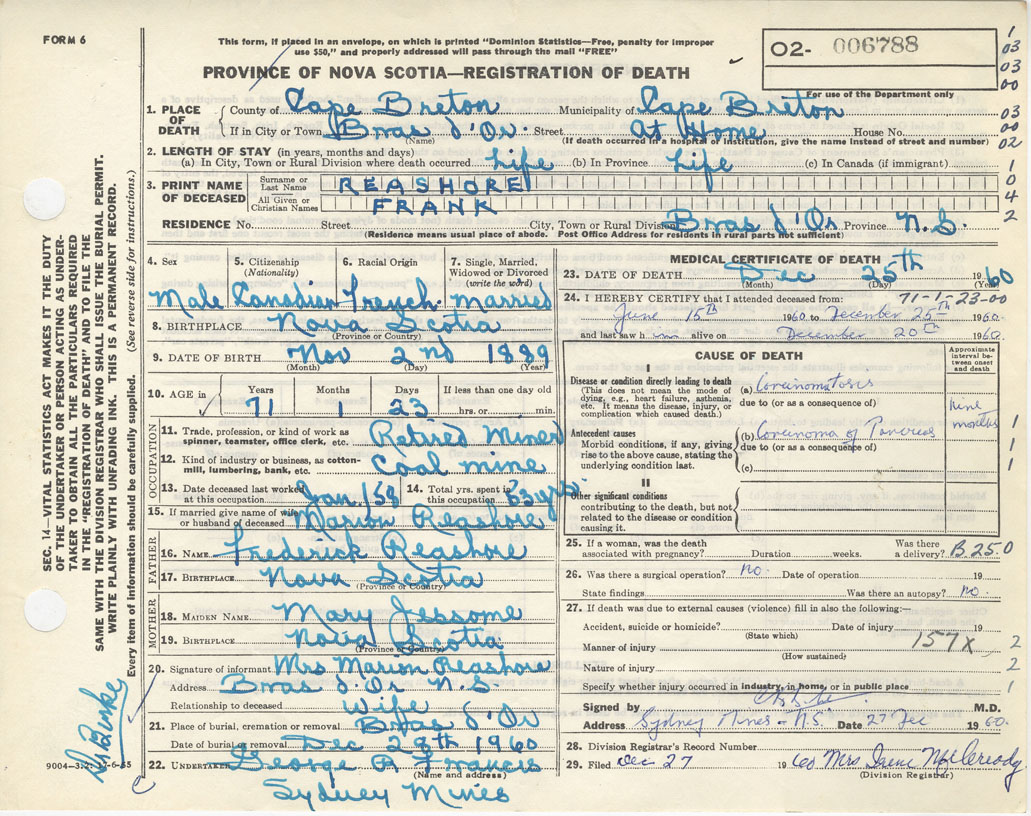 FORM 6
This form, if placed in an envelope, on which is printed "Dominion Statistics—Free, penalty for improper
use $50," and properly addressed will pass through the mail "FREE"
O2- 006788
For use of the Department only
PROVINCE OF NOVA SCOTIA—REGISTRATION OF DEATH
1 03 03 00 03 00 02 1 0 4 2
1. PLACE OF DEATH County of Cape Breton Municipality of Cape Breton
If in City or Town Bras d'Or. Street At Home House No.
(Name) (If death occurred in a hospital or institution, give the name instead of street and number)
2. LENGTH OF STAY (in years, months and days)
(a) In City, Town or Rural Division where death occurred Life (b) In Province Life (c) In Canada (if immigrant)
3. PRINT NAME OF DECEASED Surname or Last Name REASHORE
All Given or Christian Names FRANK
RESIDENCE No. Street City, Town or Rural Division Bras d'Or Province N.S.
(Residence means usual place of abode. Post Office Address for residents in rural parts not sufficient)
SEC. 14—VITAL STATISTICS ACT MAKES IT THE DUTY
OF THE UNDERTAKER OR PERSON ACTING AS UNDER-
TAKER TO OBTAIN ALL THE PARTICULARS REQUIRED
IN THE "REGISTRATION OF DEATH" AND TO FILE THE
SAME WITH THE DIVISION REGISTRAR WHO SHALL ISSUE THE BURIAL PERMIT.
WRITE PLAINLY WITH UNFADING INK. THIS IS A PERMANENT RECORD.
Every item of information should be carefully supplied. (See reverse side for instructions.)
4. Sex 5. Citizenship (Nationality) 6. Racial Origin 7. Single, Married, Widowed or Divorced (write the word)
Male Canadian French. Married
8. BIRTHPLACE Nova Scotia
(Province or Country)
9. DATE OF BIRTH Nov 2nd 1889
(Month) (Day) (Year)
10. AGE in Years Months Days If less than one day old
71 1 23 hrs. or min.
OCCUPATION
11. Trade, profession, or kind of work as spinner, teamster, office clerk, etc. Retired Miner
12. Kind of industry or business, as cotton-mill, lumbering, bank, etc. Coal mine
13. Date deceased last worked at this occupation Jan. 158 14. Total yrs. spent in this occupation 53 yrs.
15. If married give name of wife or husband of deceased Marion Reashore
FATHER
16. NAME Frederick Reashore
17. BIRTHPLACE Nova Scotia
(Province or Country)
MOTHER
18. MAIDEN NAME Mary Jessome
19. BIRTHPLACE Nova Scotia
(Province or Country)
20. Signature of informant Mrs Marion Reashore
Address Bras d'Or N.S.
Relationship to deceased Wife
21. Place of burial, cremation or removal Bras d'Or
Date of burial or removal Dec 28th 1960
22. UNDERTAKER George A Francis
(Name and address)
Sydney Mines
MEDICAL CERTIFICATE OF DEATH
23. DATE OF DEATH Dec 25th 1960
(Month) (Day) (Year)
24. I HEREBY CERTIFY that I attended deceased from: 71-1-23-00
June 15th 1960 to December 25th 1960
and last saw h im alive on December 20th 1960
CAUSE OF DEATH
Approximate interval between onset and death
I
Disease or condition directly leading to death
(This does not mean the mode of dying, e.g., heart failure, asthenia, etc. It means the disease, injury, or complication which caused death.)
(a) Carcinomatosis
due to (or as a consequence of)
nine months
Antecedent causes
Morbid conditions, if any, giving rise to the above cause, stating the underlying condition last.
(b) Carcinoma of Pancreas
due to (or as a consequence of)
(c)
1 1 1
II
Other significant conditions
contributing to the death, but not related to the disease or condition causing it.
25. If a woman, was the death associated with pregnancy? Duration weeks. Was there a delivery? B 25.0
26. Was there a surgical operation? no. Date of operation 19
State findings Was there an autopsy? no.
27. If death was due to external causes (violence) fill in also the following:—
Accident, suicide or homicide? Date of injury 19
(State which)
Manner of injury 157X 2
(How sustained)
Nature of injury 2
Specify whether injury occurred in industry, in home, or in public place 1
Signed by M.D.
Address Sydney Mines - N.S. Date 27 Dec 1960.
28. Division Registrar's Record Number
29. Filed Dec 27 1960 Mrs Irene
(Division Registrar)
9004—3.2: 15-6-55